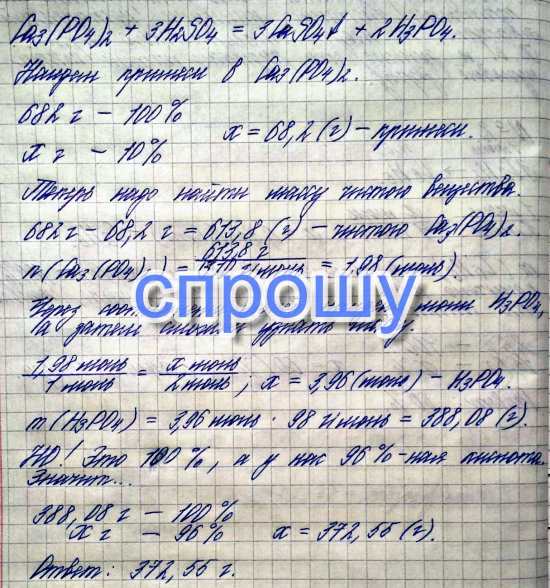 Ca3(PO4)2 + 3H2SO4 = 3CaSO4↓ + 2H3PO4.
Найдем примеси в Ca3(PO4)2.
682 г - 100%
х г - 10%
х = 68,2 (г) - примеси.
Теперь надо найти массу чистого вещества.
682 г - 68,2 г = 613,8 (г) - чистого Ca3(PO4)2.
n(Ca3(PO4)2) = 613,8 г / 310 г/моль = 1,98 (моль).
спрошу
Через моли H3PO4,
а затем
1,98 моль / 1 моль = х моль / 2 моль ; х = 3,96 (моль) - H3PO4.
m(H3PO4) = 3,96 моль · 98 г/моль = 388,08 (г).
НО! Это 100%, а у нас 96%-ная кислота.
Значит...
388,08 г - 100%
х г - 96%
х = 372,55 (г).
Ответ: 372,55 г.